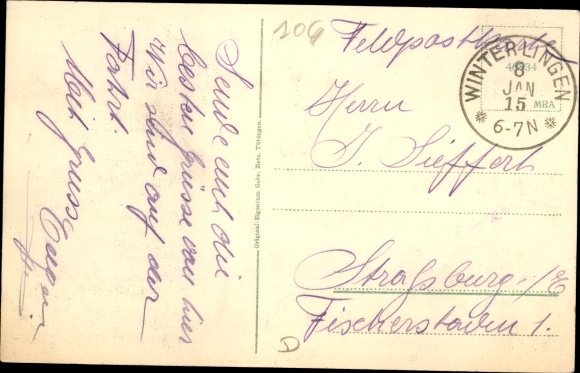 Sende euch die
besten Grüsse von hier
Wir sind auf der
Fahrt.
Mit Gruss
Original-Eigentum Gebr. Metz, Tübingen.
106
Feldpostkarte
46934
MRA
WINTERLINGEN
8
JAN
15
6-7N
Herrn
J. Sieffert
Strassburg i/E
Fischerstaden 1.
D